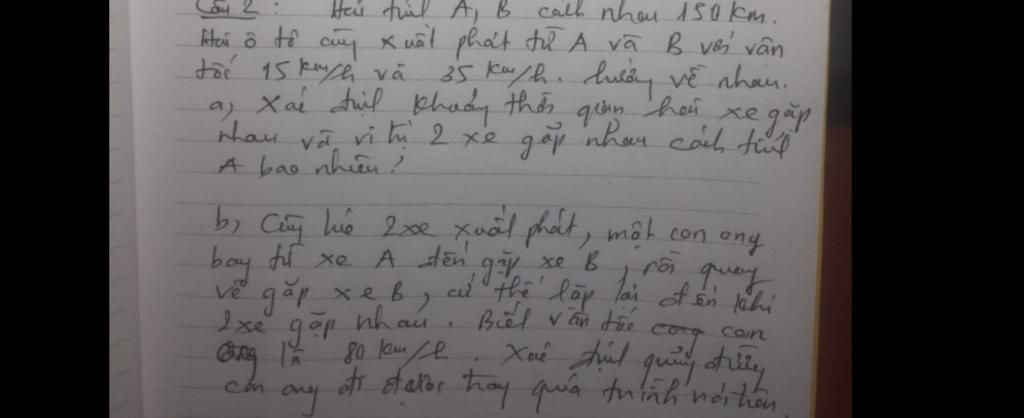 Câu 2: Hai tỉnh A, B cách nhau 150km.
Hai ô tô cùng xuất phát từ A và B với vân
tốc 15km/h và 35km/h. hướng về nhau.
a, Xác định khoảng thời gian hai xe gặp
nhau và vị trí 2 xe gặp nhau cách tỉnh
A bao nhiêu?
b, Cùng lúc 2xe xuất phát, một con ong
bay từ xe A đến gặp xe B, rồi quay
về gặp xe B, cứ thế lặp lại đến khi
2xe gặp nhau. Biết vân tốc con
ong là 80km/h. Xác định quãng đường
con ong đi được trong quá trình nói trên.